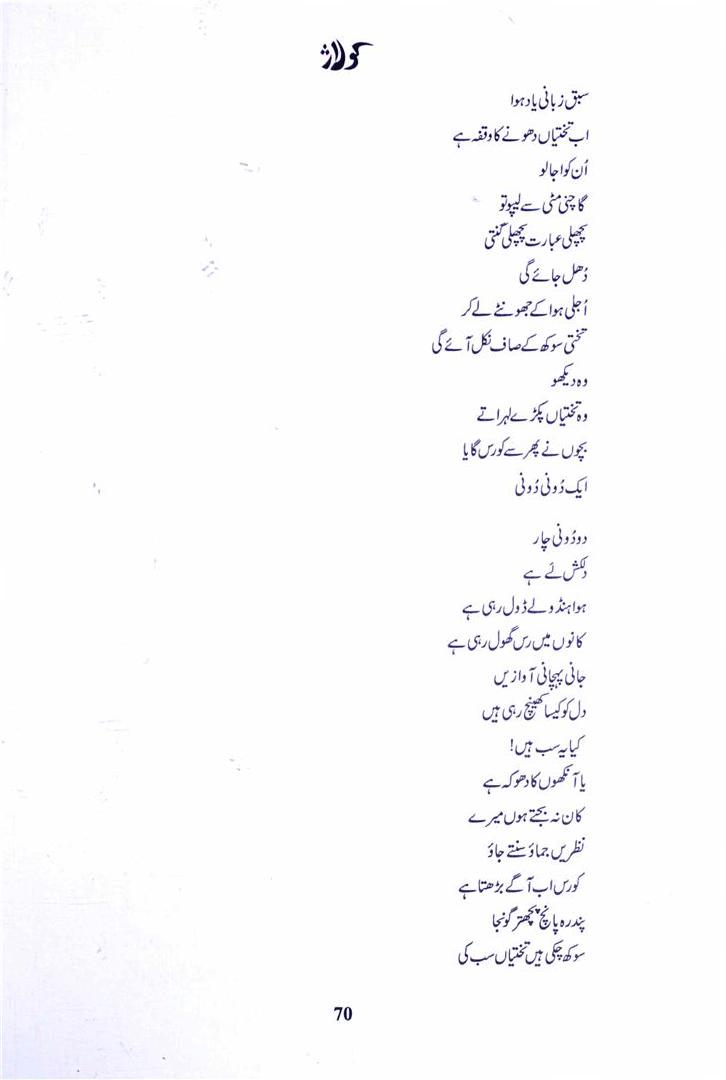 کولاژ
سبق زبانی یاد ہوا
اب تختیاں دھونے کا وقفہ ہے
اُن کو اجالو
گاچنی مٹی سے لیپو تو
پچھلی عبارت پچھلی گنتی
دُھل جائے گی
اُجلی ہوا کے جھونٹے لے کر
تختی سوکھ کے صاف نکل آئے گی
وہ دیکھو
وہ تختیاں پکڑے لہراتے
بچوں نے پھر سے کورس گایا
ایک دُونی دُونی
دو دُونی چار
دلکش لَے ہے
ہوا ہنڈولے ڈول رہی ہے
کانوں میں رس گھول رہی ہے
جانی پہچانی آوازیں
دل کو کیسا کھینچ رہی ہیں
کیا یہ سب ہیں!
یا آنکھوں کا دھوکہ ہے
کان نہ بجتے ہوں میرے
نظریں جماؤ سنتے جاؤ
کورس اب آگے بڑھتا ہے
پندرہ پانچ پچھتر گونجا
سوکھ چکی ہیں تختیاں سب کی
70